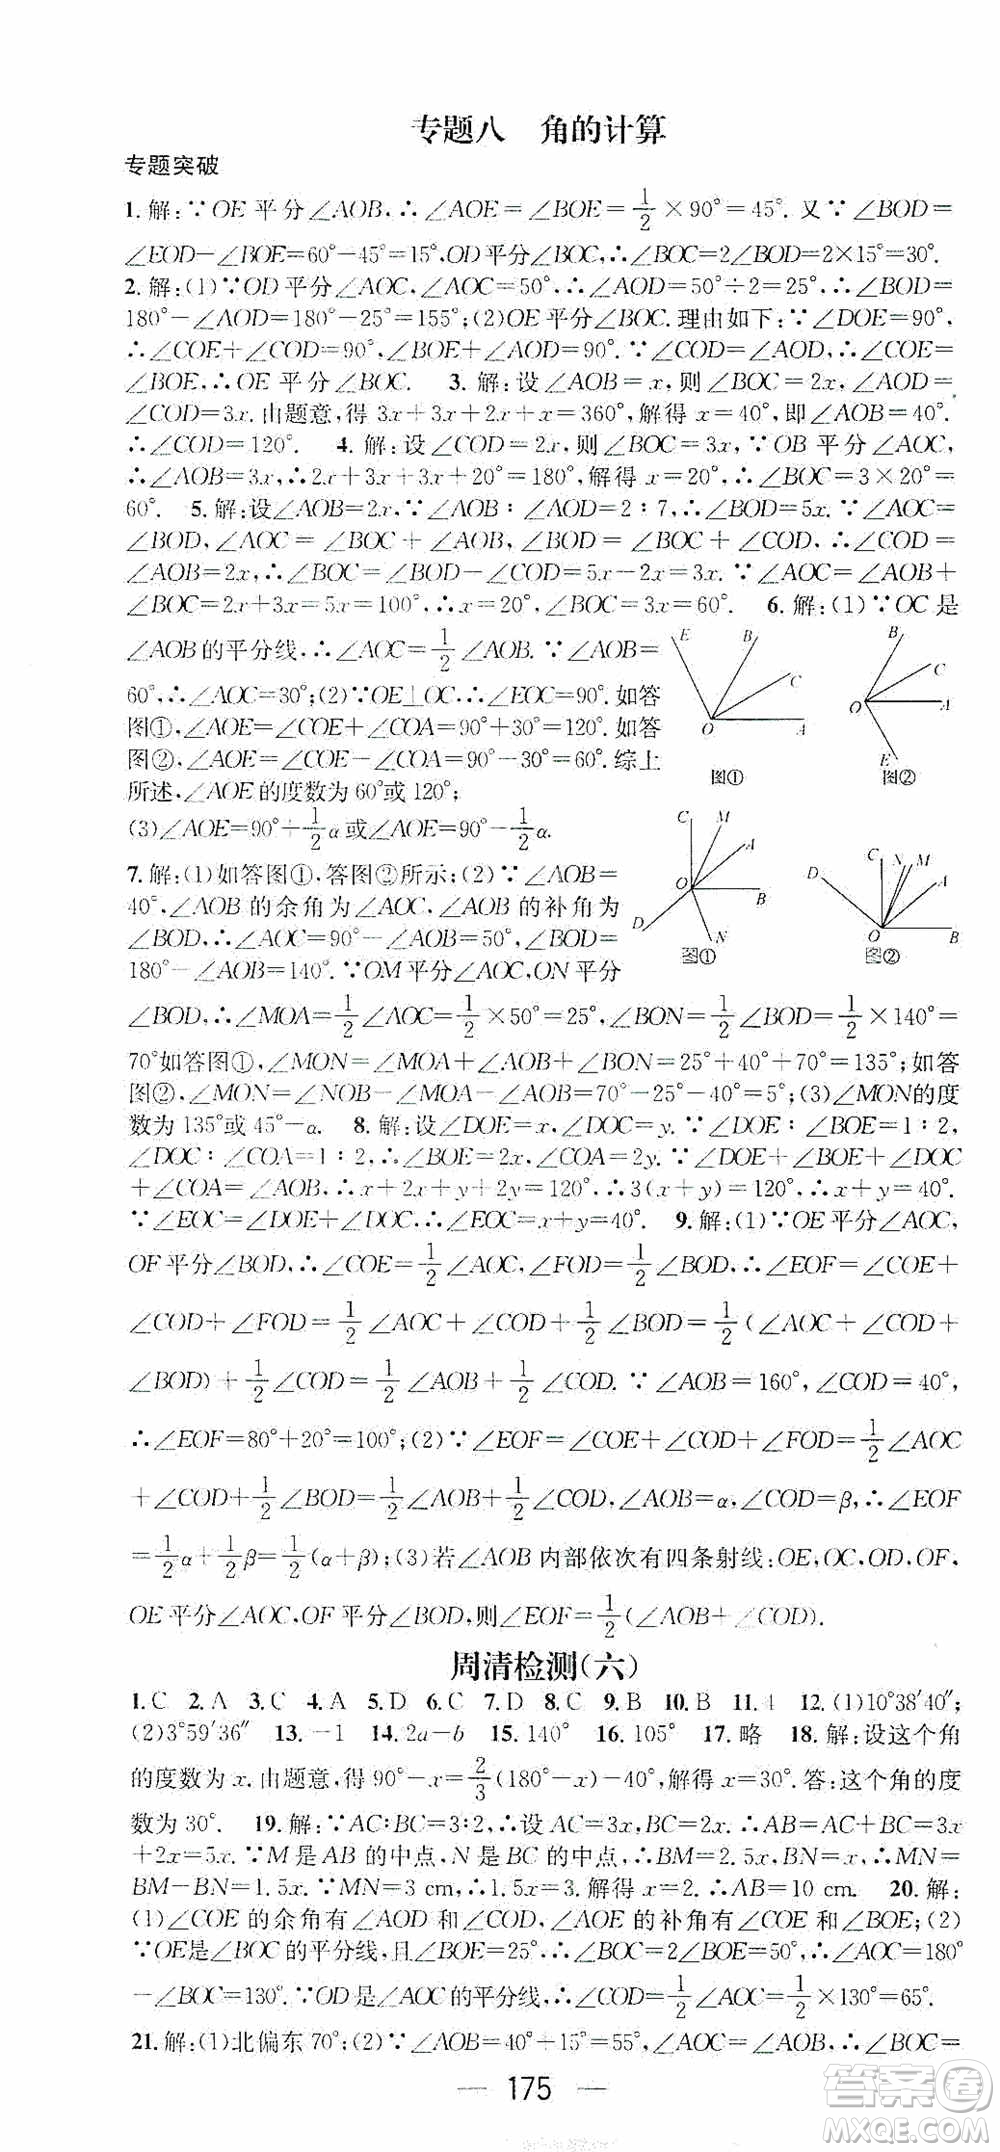 专题八　角的计算
专题突破
1.解:∵OE平分∠AOB,∴∠AOE=∠BOE=1/2×90°=45°.又∵∠BOD=
∠EOD-∠BOE=60°-45°=15°,OD平分∠BOC,∴∠BOC=2∠BOD=2×15°=30°.
2.解:(1)∵OD平分∠AOC,∠AOC=50°,∴∠AOD=50°÷2=25°,∴∠BOD=
180°-∠AOD=180°-25°=155°;(2)OE平分∠BOC.理由如下:∵∠DOE=90°,
∴∠COE+∠COD=90°,∠BOE+∠AOD=90°.∵∠COD=∠AOD,∴∠COE=
∠BOE,∴OE平分∠BOC.　3.解:设∠AOB=x,则∠BOC=2x,∠AOD=
∠COD=3x.由题意,得3x+3x+2x+x=360°,解得x=40°,即∠AOB=40°.
∴∠COD=120°.　4.解:设∠COD=2x,则∠BOC=3x,∵OB平分∠AOC,
∴∠AOB=3x,∴2x+3x+3x+20°=180°,解得x=20°,∴∠BOC=3×20°=
60°.　5.解:设∠AOB=2x,∵∠AOB:∠AOD=2:7,∴∠BOD=5x.∵∠AOC=
∠BOD,∠AOC=∠BOC+∠AOB,∠BOD=∠BOC+∠COD,∴∠COD=
∠AOB=2x,∴∠BOC=∠BOD-∠COD=5x-2x=3x.∵∠AOC=∠AOB+
∠BOC=2x+3x=5x=100°,∴x=20°,∠BOC=3x=60°.　6.解:(1)∵OC是
∠AOB的平分线,∴∠AOC=1/2∠AOB.∵∠AOB=
60°,∴∠AOC=30°;(2)∵OE⊥OC,∴∠EOC=90°.如答
图①,∠AOE=∠COE+∠COA=90°+30°=120°.如答
图②,∠AOE=∠COE-∠COA=90°-30°=60°.综上
所述,∠AOE的度数为60°或120°;
(3)∠AOE=90°+1/2α或∠AOE=90°-1/2α.
E B C O A
图①
B C O A E
图②
7.解:(1)如答图①,答图②所示;(2)∵∠AOB=
40°,∠AOB的余角为∠AOC,∠AOB的补角为
∠BOD,∴∠AOC=90°-∠AOB=50°,∠BOD=
180°-∠AOB=140°.∵OM平分∠AOC,ON平分
C M A O B D N
图①
D C N M A O B
图②
∠BOD,∴∠MOA=1/2∠AOC=1/2×50°=25°,∠BON=1/2∠BOD=1/2×140°=
70°如答图①,∠MON=∠MOA+∠AOB+∠BON=25°+40°+70°=135°;如答
图②,∠MON=∠NOB-∠MOA-∠AOB=70°-25°-40°=5°;(3)∠MON的度
数为135°或45°-α.　8.解:设∠DOE=x,∠DOC=y.∵∠DOE:∠BOE=1:2,
∠DOC:∠COA=1:2,∴∠BOE=2x,∠COA=2y.∵∠DOE+∠BOE+∠DOC+
∠COA=∠AOB,∴x+2x+y+2y=120°,∴3(x+y)=120°,∴x+y=40°.
∵∠EOC=∠DOE+∠DOC,∴∠EOC=x+y=40°.　9.解:(1)∵OE平分∠AOC,
OF平分∠BOD,∴∠COE=1/2∠AOC,∠FOD=1/2∠BOD,∴∠EOF=∠COE+
∠COD+∠FOD=1/2∠AOC+∠COD+1/2∠BOD=1/2(∠AOC+∠COD+
∠BOD)+1/2∠COD=1/2∠AOB+1/2∠COD.∵∠AOB=160°,∠COD=40°,
∴∠EOF=80°+20°=100°;(2)∵∠EOF=∠COE+∠COD+∠FOD=1/2∠AOC
+∠COD+1/2∠BOD=1/2∠AOB+1/2∠COD,∠AOB=α,∠COD=β,∴∠EOF
=1/2α+1/2β=1/2(α+β);(3)若∠AOB内部依次有四条射线:OE,OC,OD,OF,
OE平分∠AOC,OF平分∠BOD,则∠EOF=1/2(∠AOB+∠COD).
周清检测(六)
1.C　2.A　3.C　4.A　5.D　6.C　7.D　8.C　9.B　10.B　11.4　12.(1)10°38′40″;
(2)3°59′36″　13.-1　14.2a-b　15.140°　16.105°　17.略　18.解:设这个角
的度数为x.由题意,得90°-x=2/3(180°-x)-40°,解得x=30°.答:这个角的度
数为30°.　19.解:∵AC:BC=3:2,∴设AC=3x,BC=2x.∴AB=AC+BC=3x
+2x=5x.∵M是AB的中点,N是BC的中点,∴BM=2.5x,BN=x,∴MN=
BM-BN=1.5x.∵MN=3 cm,1.5x=3.解得x=2.∴AB=10 cm.　20.解:
(1)∠COE的余角有∠AOD和∠COD,∠AOE的补角有∠COE和∠BOE;(2)
∵OE是∠BOC的平分线,且∠BOE=25°,∴∠BOC=2∠BOE=50°,∴∠AOC=180°
-∠BOC=130°.∵OD是∠AOC的平分线,∴∠COD=1/2∠AOC=1/2×130°=65°.
21.解:(1)北偏东70°;(2)∵∠AOB=40°+15°=55°,∠AOC=∠AOB,∴∠AOC=
— 175 —
答案圈
MXQE.COM